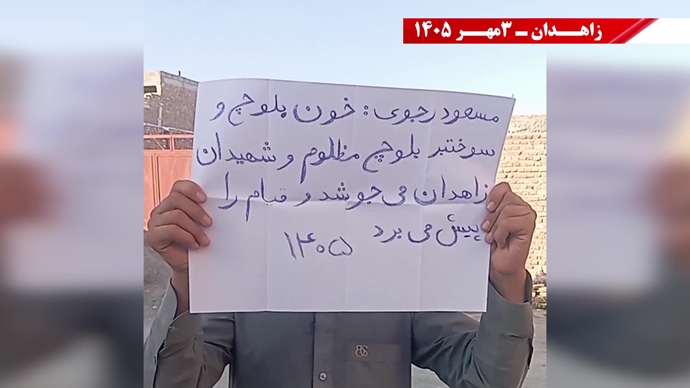 زاهـدان ـ ۳مهـر ۱۴۰۵
مسعود رجوی: خون بلوچ و
سوختبر بلوچ مظلوم و شهیدان
زاهدان می‌جوشد و قیام را
پیش می برد
۱۴۰۵